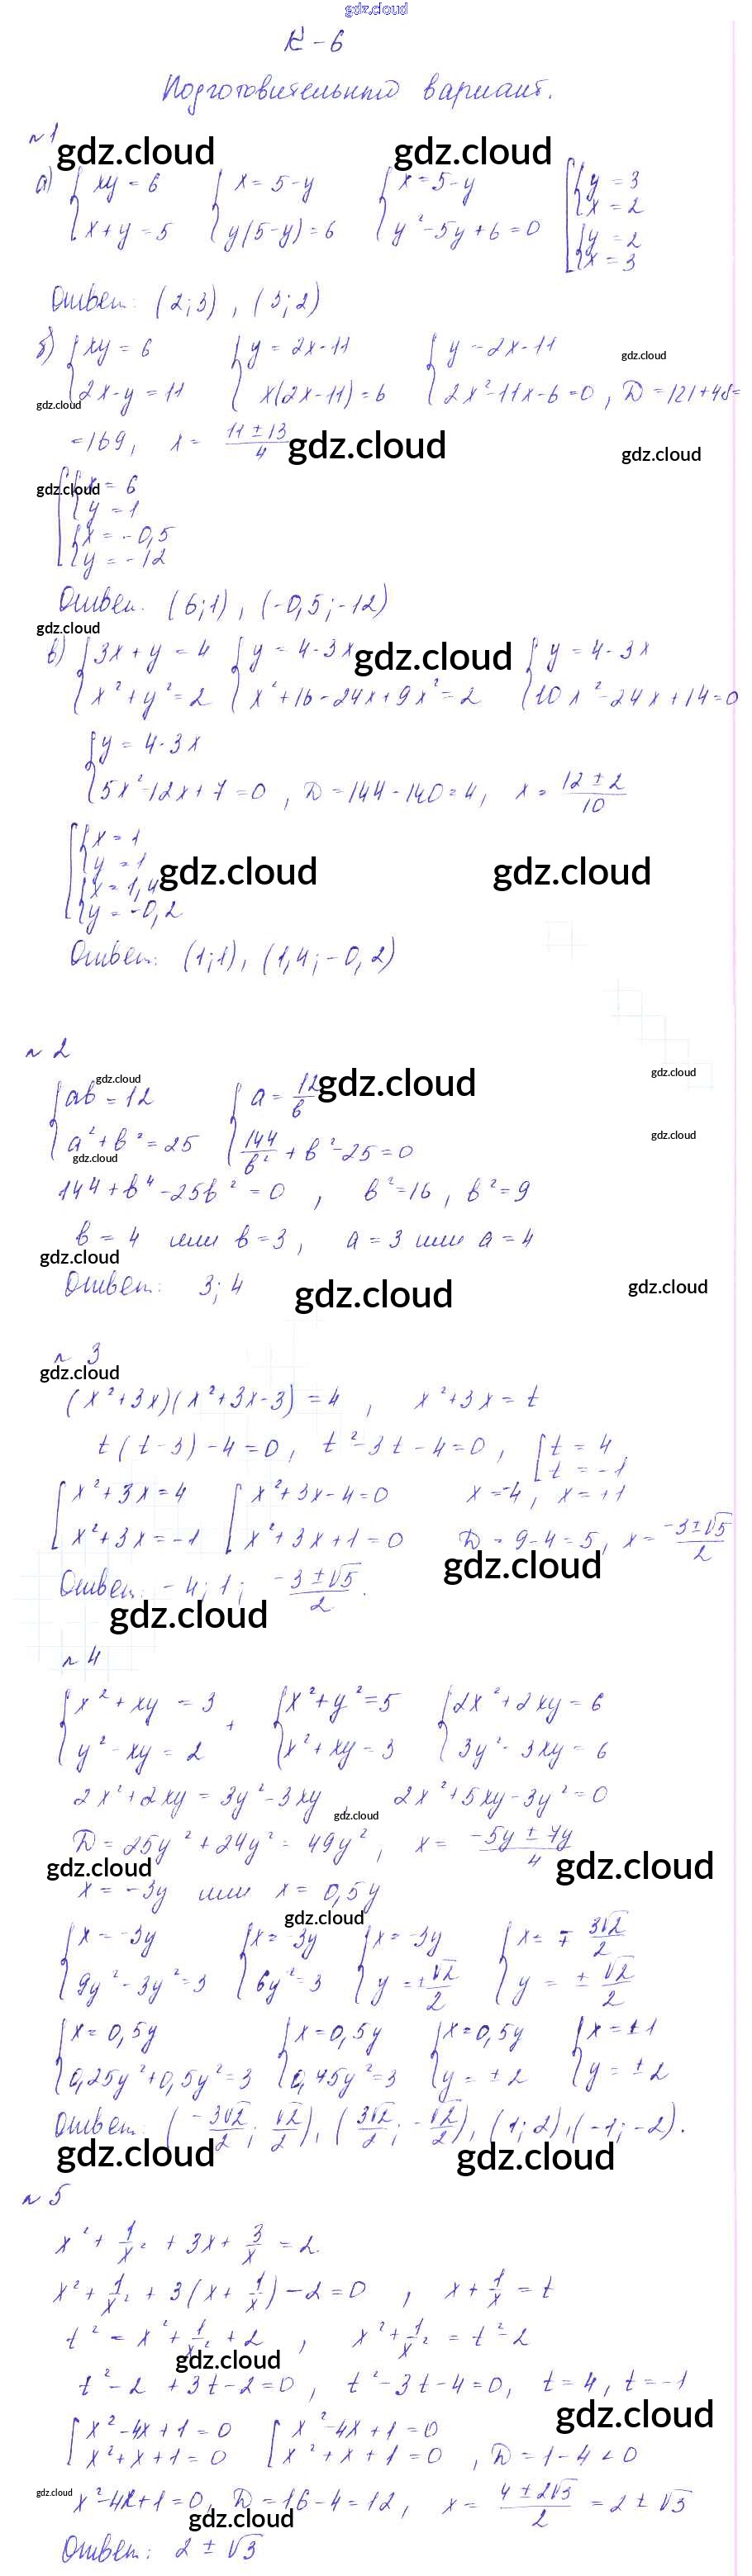 gdz.cloud
К-6
Подготовительный вариант.
№1
gdz.cloud gdz.cloud
а) { xy = 6 { x = 5-y { x = 5-y [ { y = 3
x+y = 5 y(5-y) = 6 y²-5y+6 = 0 x = 2
{ y = 2
x = 3
Ответ: (2;3), (3;2)
б) { xy = 6 { y = 2x-11 { y = 2x-11
gdz.cloud
2x-y = 11 x(2x-11) = 6 2x²-11x-6 = 0, D = 121+48=
gdz.cloud
=169, x = (11 ± 13)/4
gdz.cloud gdz.cloud
gdz.cloud
[ { x = 6
y = 1
{ x = -0,5
y = -12
Ответ. (6;1), (-0,5;-12)
gdz.cloud
в) { 3x+y = 4 { y = 4-3x { y = 4-3x
gdz.cloud
x²+y² = 2 x²+16-24x+9x² = 2 10x²-24x+14 = 0
{ y = 4-3x
5x²-12x+7 = 0, D = 144-140 = 4, x = (12 ± 2)/10
[ { x = 1
y = 1
{ x = 1,4
y = -0,2
gdz.cloud gdz.cloud
Ответ: (1;1), (1,4;-0,2)
№2
gdz.cloud gdz.cloud gdz.cloud
{ ab = 12 { a = 12/b
a²+b² = 25 144/b² + b²-25 = 0
gdz.cloud gdz.cloud
144+b⁴-25b² = 0, b² = 16, b² = 9
b = 4 или b = 3, a = 3 или a = 4
gdz.cloud
Ответ: 3; 4
gdz.cloud gdz.cloud
№3
gdz.cloud
(x²+3x)(x²+3x-3) = 4, x²+3x = t
t(t-3)-4 = 0, t²-3t-4 = 0, [ t = 4
t = -1
[ x²+3x = 4 [ x²+3x-4 = 0 x = -4, x = +1
x²+3x = -1 x²+3x+1 = 0 D = 9-4 = 5, x = (-3±√5)/2
gdz.cloud
Ответ: -4; 1; (-3±√5)/2.
gdz.cloud
№4
{ x²+xy = 3 + { x²+y² = 5 { 2x²+2xy = 6
y²-xy = 2 x²+xy = 3 3y²-3xy = 6
2x²+2xy = 3y²-3xy, 2x²+5xy-3y² = 0
gdz.cloud
D = 25y²+24y² = 49y², x = (-5y ± 7y)/4
gdz.cloud gdz.cloud
x = -3y или x = 0,5y
gdz.cloud
{ x = -3y { x = -3y { x = -3y { x = ∓ 3√2/2
9y²-3y² = 3 6y² = 3 y = ±√2/2 y = ± √2/2
{ x = 0,5y { x = 0,5y { x = 0,5y { x = ±1
0,25y²+0,5y² = 3 0,75y² = 3 y = ±2 y = ±2
Ответ: (-3√2/2; √2/2), (3√2/2; -√2/2), (1;2), (-1;-2).
gdz.cloud gdz.cloud
№5
x² + 1/x² + 3x + 3/x = 2.
x² + 1/x² + 3(x + 1/x) - 2 = 0, x + 1/x = t
t² = x² + 1/x² + 2, x² + 1/x² = t²-2
gdz.cloud
t²-2 + 3t-2 = 0, t²-3t-4 = 0, t = 4, t = -1
gdz.cloud
[ x²-4x+1 = 0 [ x²-4x+1 = 0
x²+x+1 = 0 x²+x+1 = 0, D = 1-4 < 0
gdz.cloud
x²-4x+1 = 0, D = 16-4 = 12, x = (4 ± 2√3)/2 = 2 ± √3
gdz.cloud
Ответ: 2 ± √3